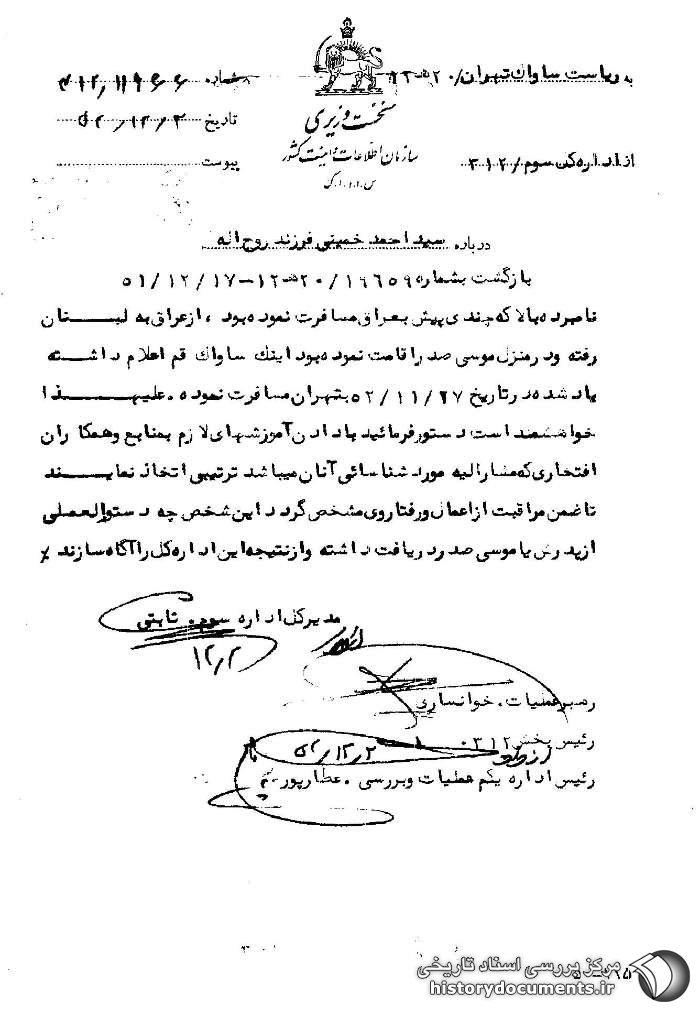 به ریاست ساواك تهران/ ۲۰ ه‍ ۱۲
شماره ۳۱۲/۱۱۹۶۶
نخست وزیری
تاریخ ۵۲/۱۲/۲
سازمان اطلاعات و امنیت کشور
از اداره کل سوم/ ۳۱۲
پیوست
س.ا.و.ا.ک
درباره سید احمد خمینی فرزند روح اله
بازگشت بشماره ۱۹۶۵۹/ ۲۰ ه‍ ۱۲-۵۱/۱۲/۱۷
نامبرده بالا که چندی پیش بعراق مسافرت نموده بود ، از عراق به لبنان
رفته و در منزل موسی صدر اقامت نموده بود اینك ساواك قم اعلام داشته
یاد شده در تاریخ ۵۲/۱۱/۲۷ بتهران مسافرت نموده . علیهذا
خواهشمند است دستور فرمائید با دادن آموزشهای لازم بمنابع و همکاران
افتخاری که مشارالیه مورد شناسائی آنان میباشد ترتیبی اتخاذ نمایند
تا ضمن مراقبت از اعمال و رفتار وی مشخص گردد این شخص چه دستورالعملی
از پدرش یا موسی صدر دریافت داشته و از نتیجه این اداره کل را آگاه سازند ٪
مدیرکل اداره سوم . ثابتی
۱۲/۲
رهبر عملیات . خوانساری
رئیس بخش ۳۱۲
۵۲/۱۲/۲
رئیس اداره یکم عملیات و بررسی . عطارپور
مرکز بررسی اسناد تاریخی
historydocuments.ir